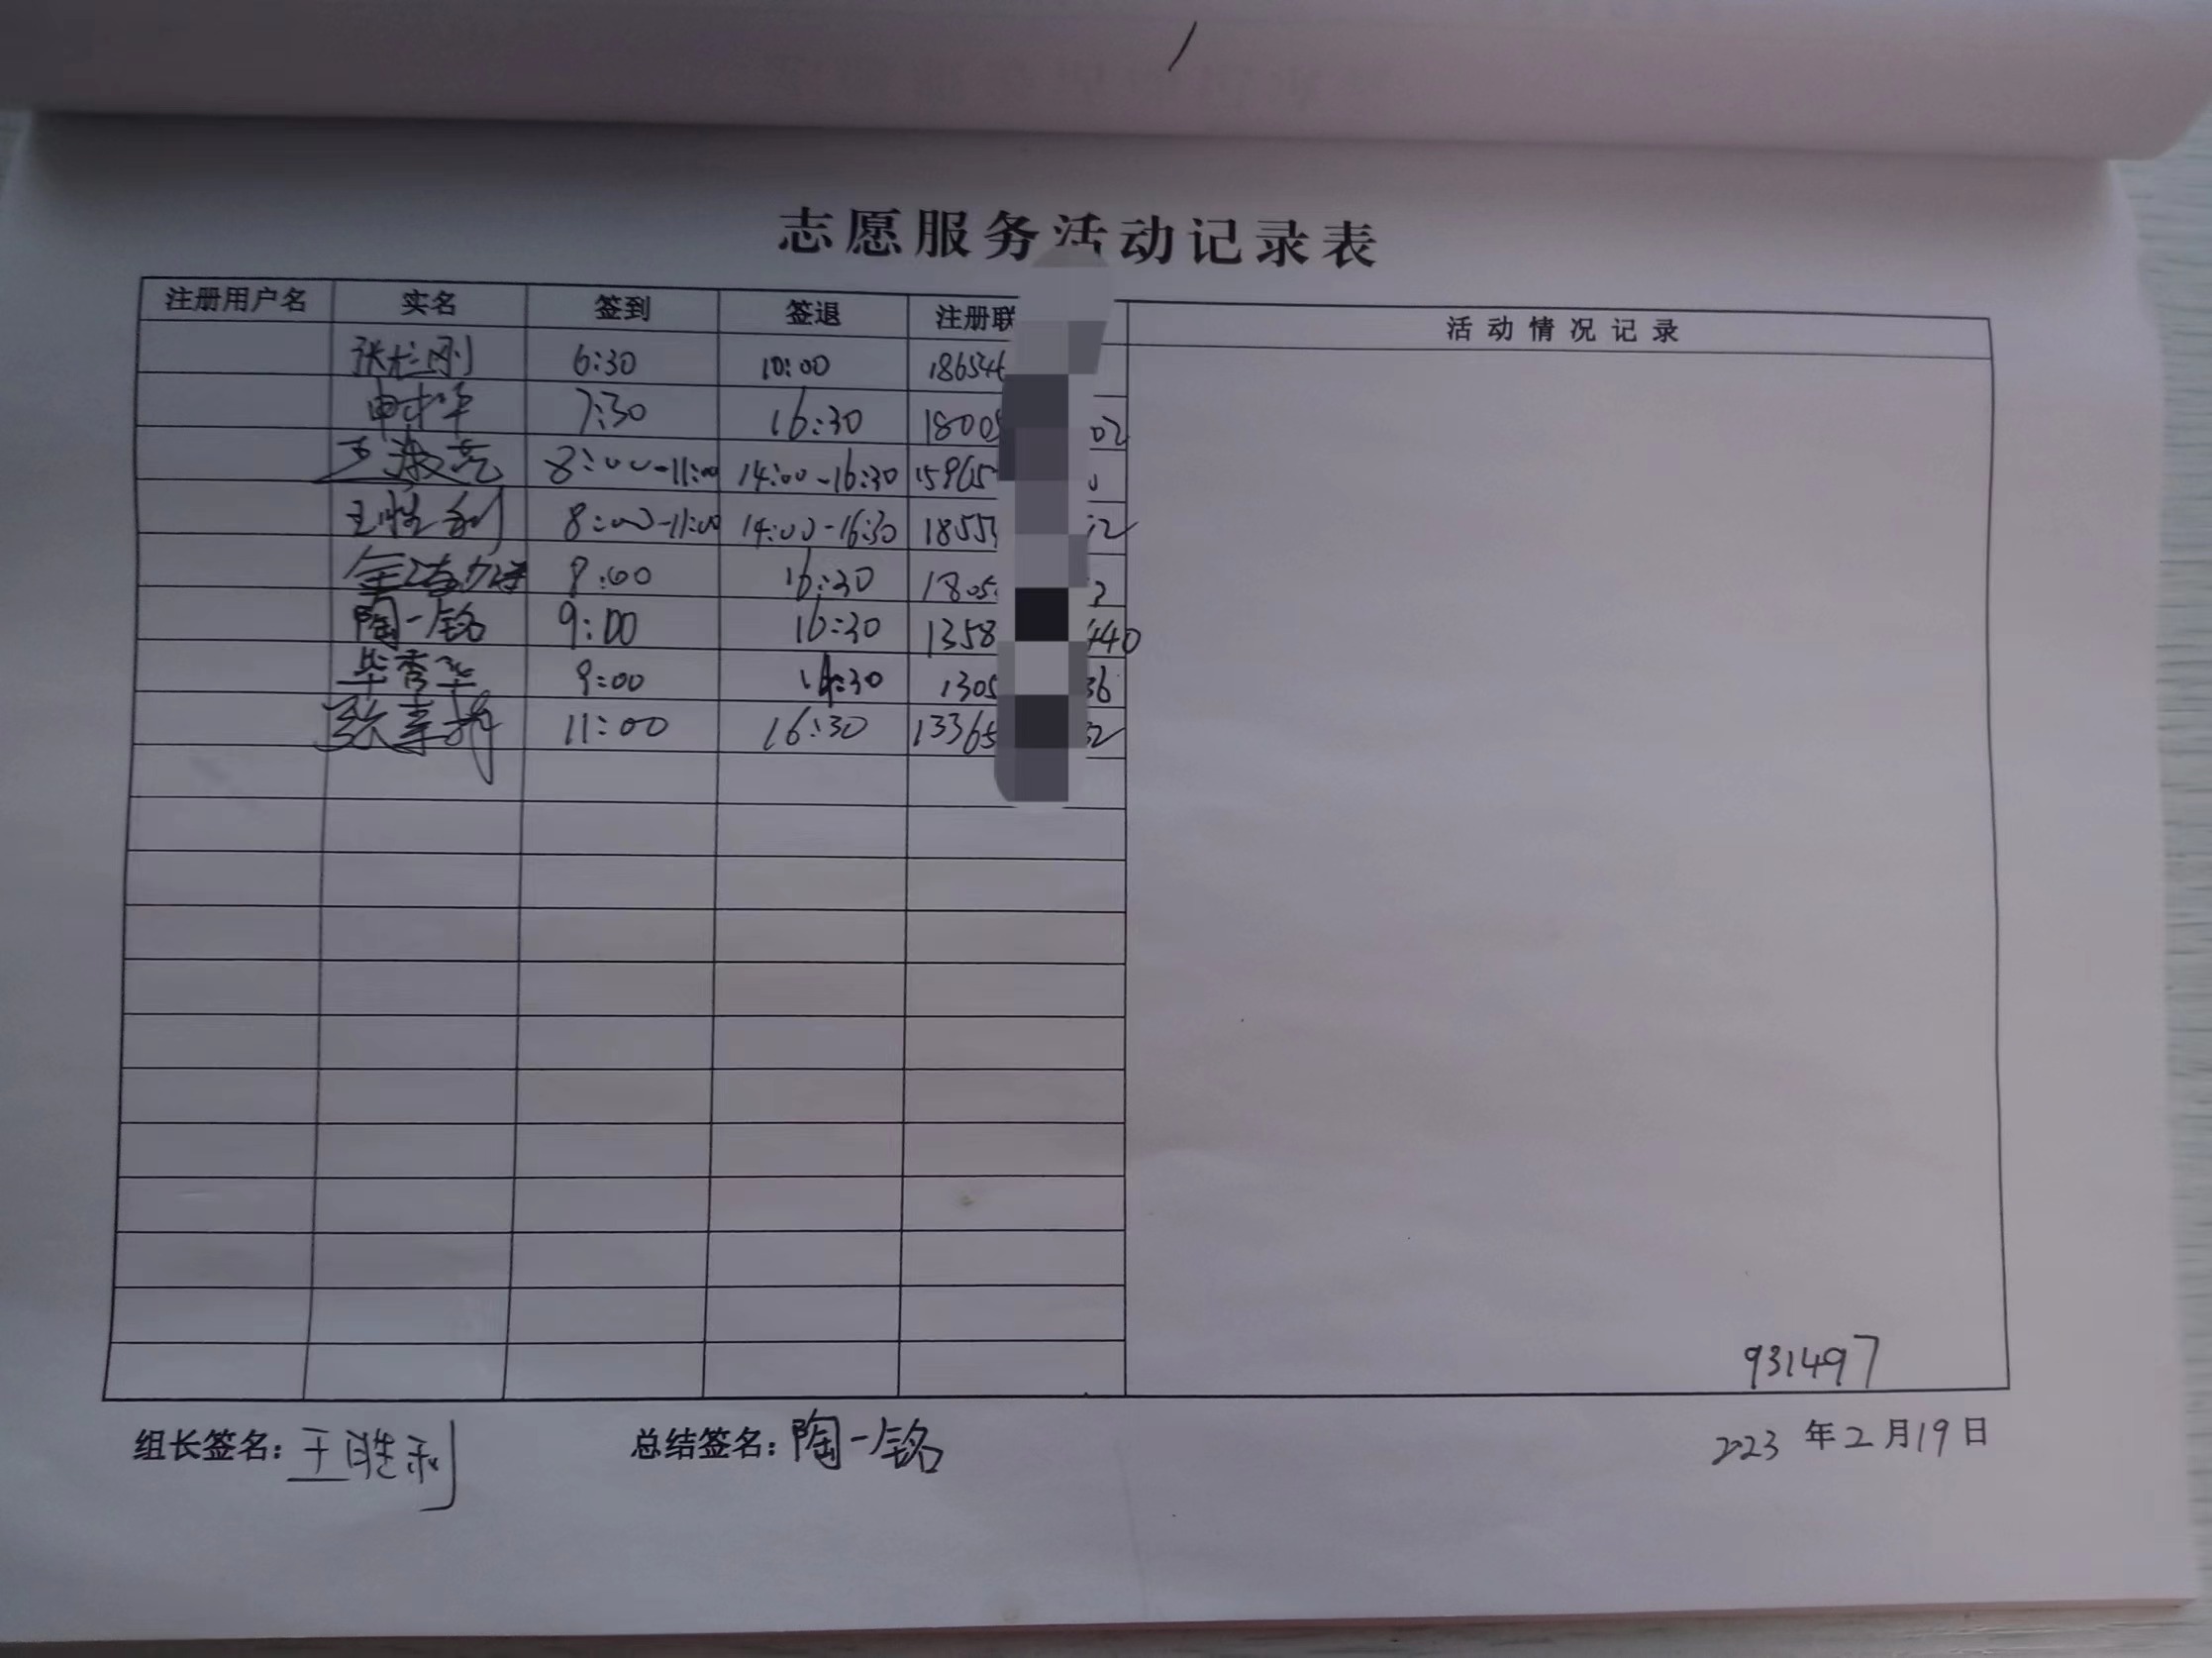 志愿服务活动记录表
注册用户名 实名 签到 签退 注册联 活动情况记录
张 刚 6:30 10:00 18654
申才华 7:30 16:30 1800 02
王淑亮 8:00-11:00 14:00-16:30 15965
王胜利 8:00-11:00 14:00-16:30 1855 2
8:00 16:30 1805
陶一铭 9:00 16:30 1358 440
毕秀华 9:00 16:30 1305 36
张 11:00 16:30 13365 32
931497
组长签名: 王胜利 总结签名: 陶一铭 2023 年 2 月 19 日